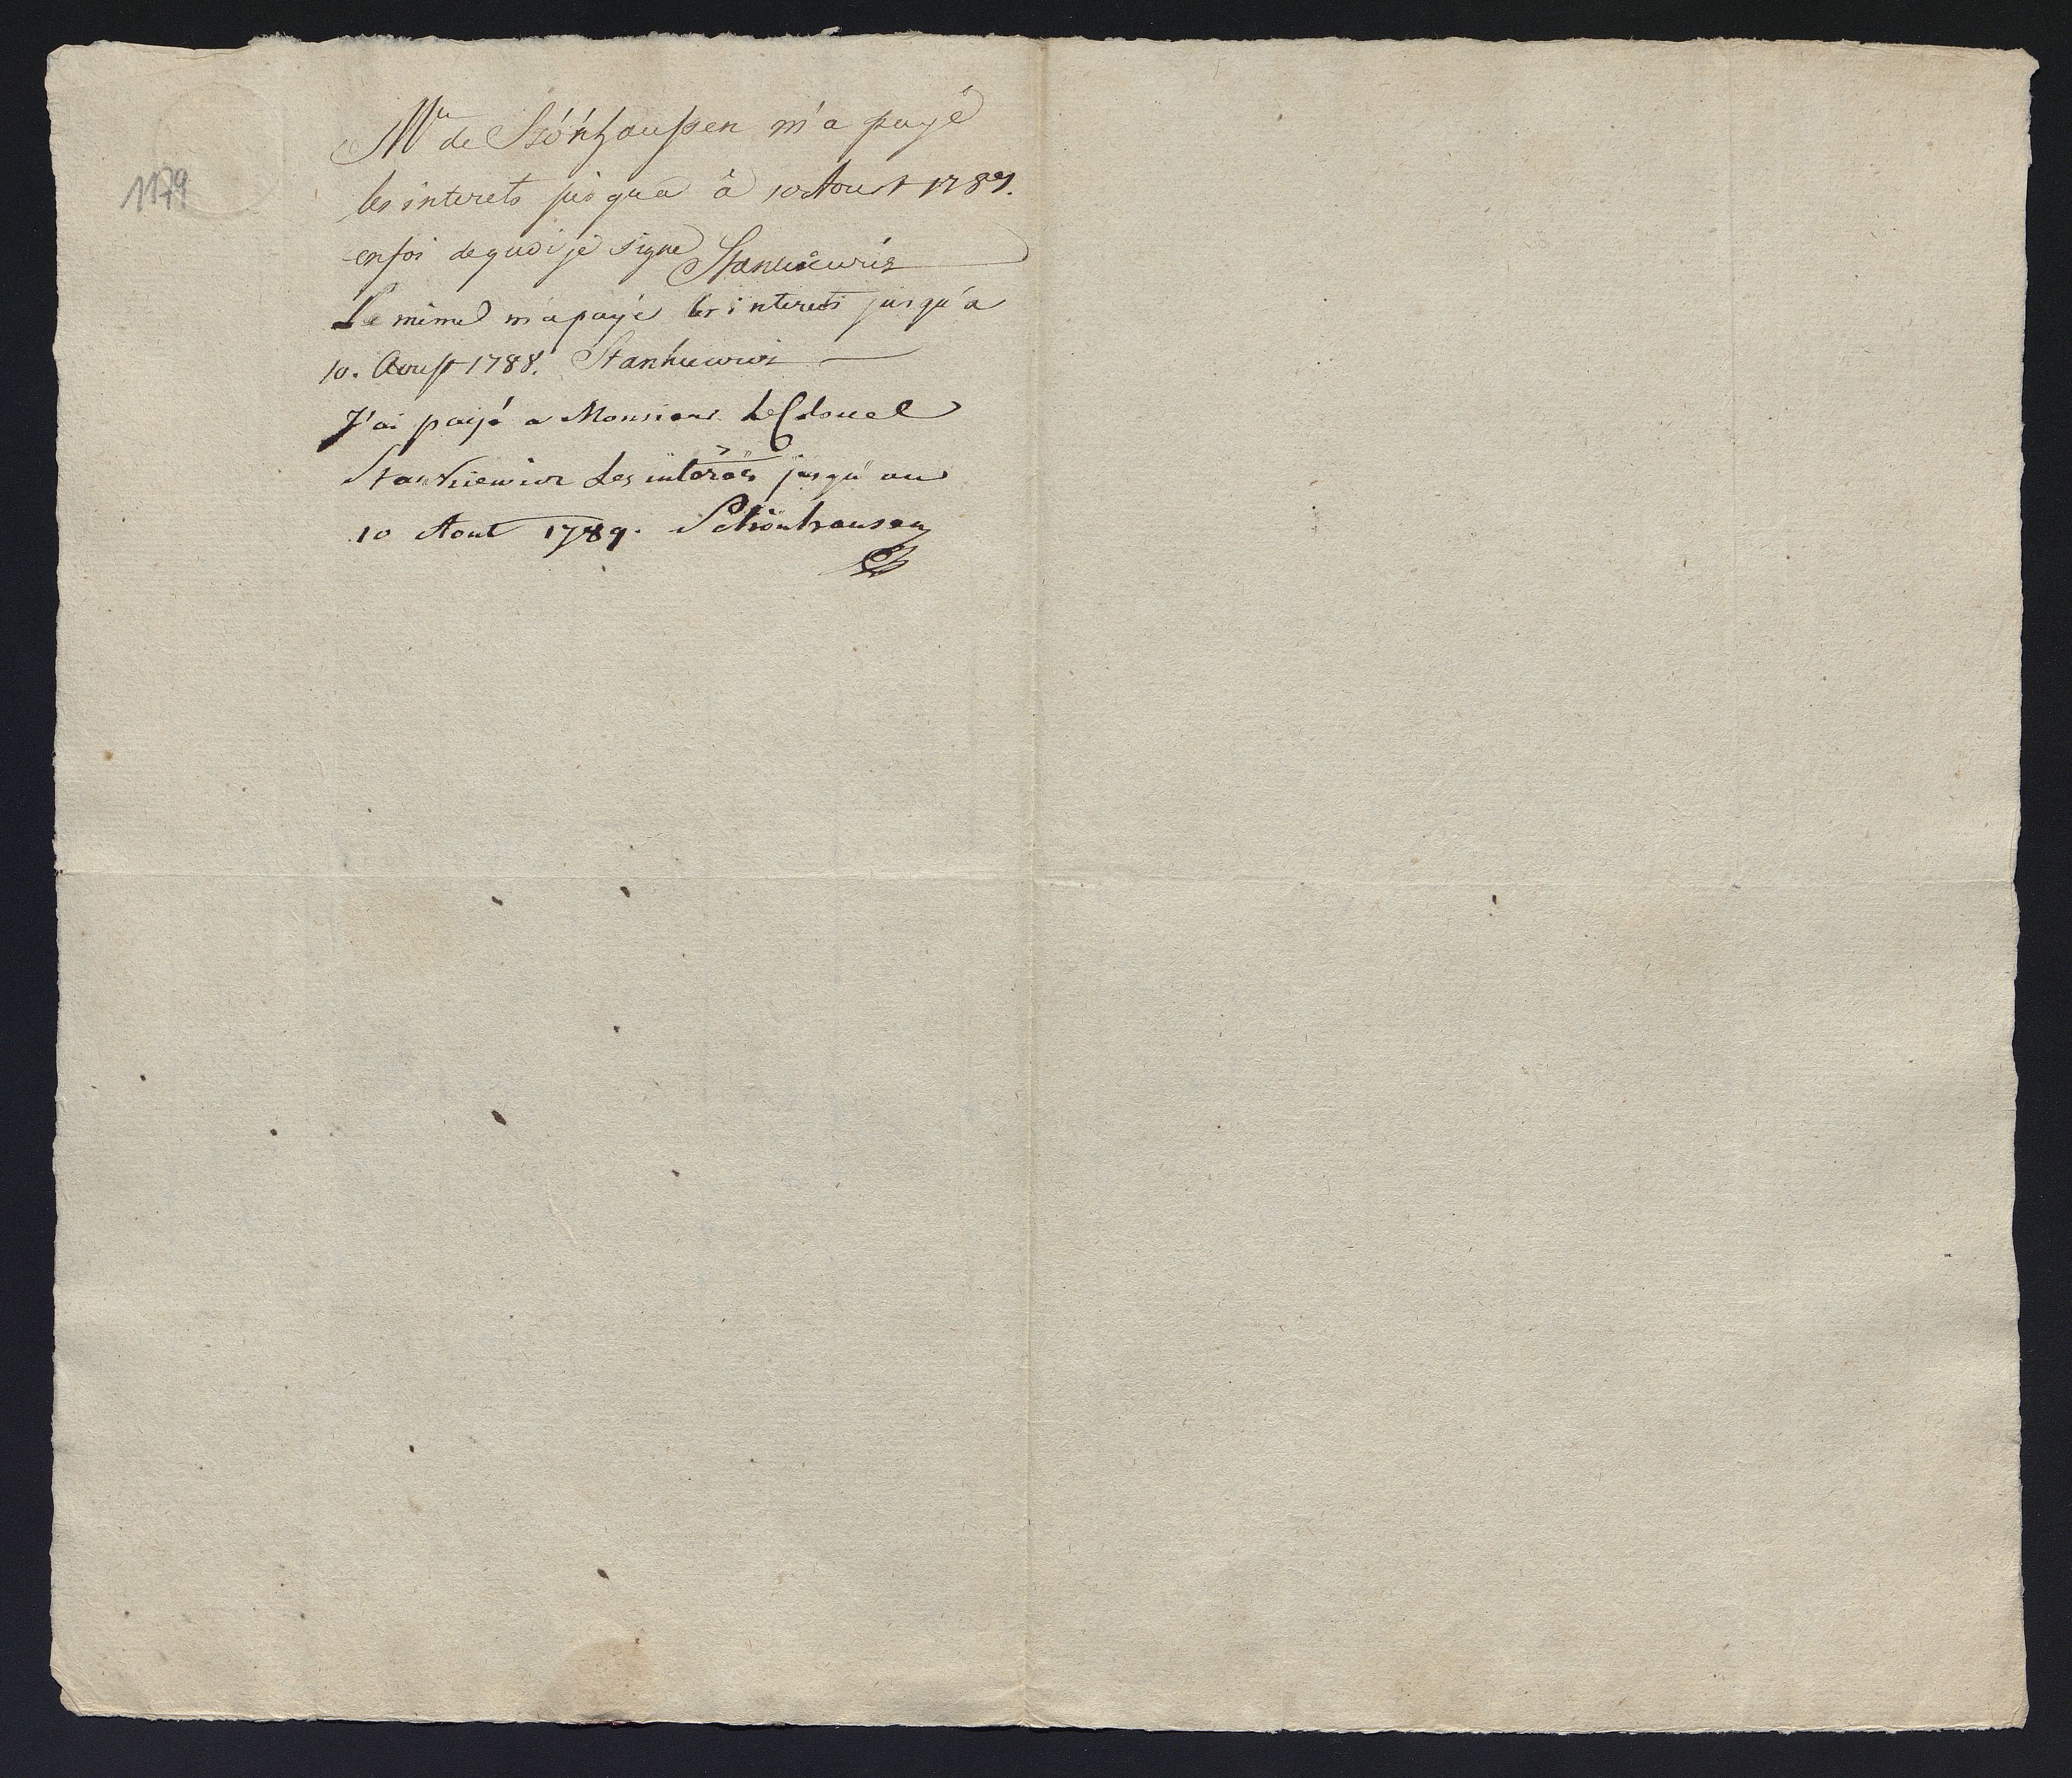 1179
Mr de Szónhaussen m'a payé
les interets jusqua à 10 Aoust 1787.
en foi de quoi je signe Stankiewicz
Le même m'a payé les interets jusqu'a
10. Aoust 1788. Stankiewicz
J'ai payé a Monsieur Le Colonel
Stankiewicz Les interets jusqu'au
10 Aout 1789. Schönhausen